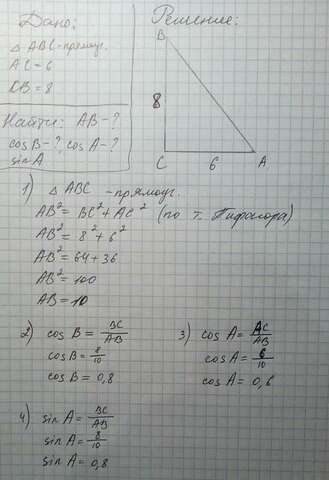 Дано:
△ ABC - прямоуг.
AC = 6
CB = 8
Найти: AB - ?
cos B - ? cos A - ?
sin A
Решение:
B
8
C 6 A
1) △ ABC - прямоуг.
AB² = BC² + AC² (по т. Пифагора)
AB² = 8² + 6²
AB² = 64 + 36
AB² = 100
AB = 10
2) cos B = BC/AB
cos B = 8/10
cos B = 0,8
3) cos A = AC/AB
cos A = 6/10
cos A = 0,6
4) sin A = BC/AB
sin A = 8/10
sin A = 0,8